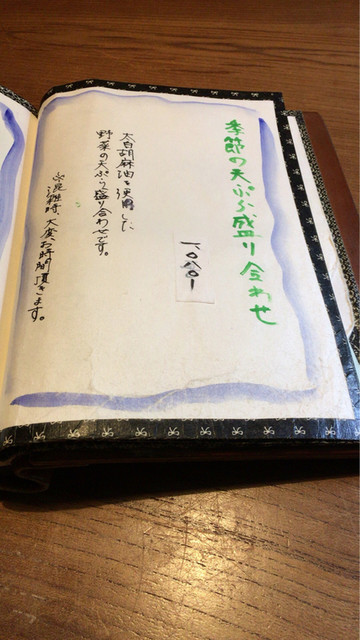 季節の天ぷら盛り合わせ
一、〇八〇ー
太白胡麻油を使用した
野菜の天ぷら盛り合わせです。
混雑時、大変お時間頂きます。